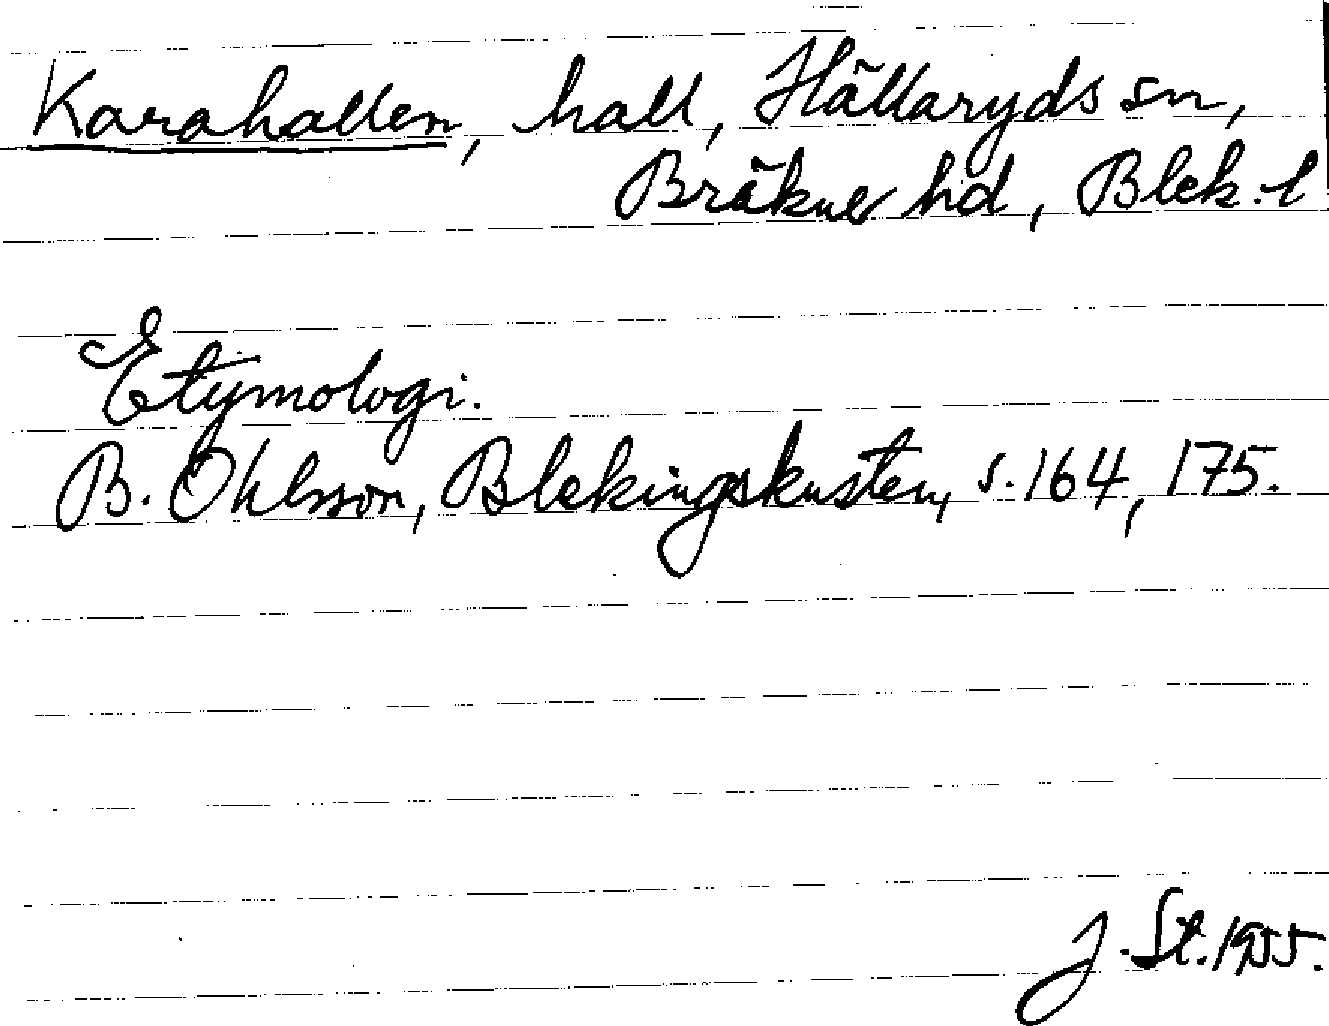 Karahallen, hall, Hällaryds sn,
Bräkne hd, Blek. l
Etymologi.
B. Ohlsson, Blekingskusten, s. 164, 175.
J. St. 1955.